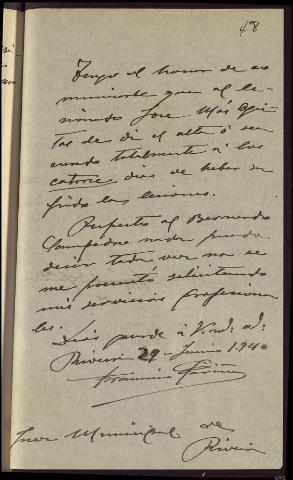 48
Tengo el honor de co
municarle que al le-
sionado Jose Más
tas de di el alta ó sea
curado totalmente á los
catorce dias de haber su
frido las lesiones.
Respecto al Bernardo
Sampedro nada puedo
decir toda vez no se
me presentó solicitando
mis servicios profesiona
les.
Dios guarde á Vmd: a:
Riveira 29 - Junio 1940
Francisco
Juez Municipal de
Riveira